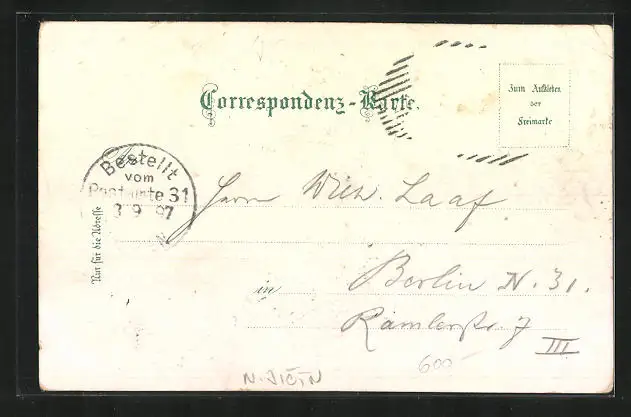 Correspondenz-Karte.
Zum Aufkleben
der
Freimarke
Bestellt
vom
Postamte 31
3 9 97
N
Nur für die Adresse
Herrn Wilh. Laaf
in Berlin N. 31.
Ramlerstr. 7
III
600